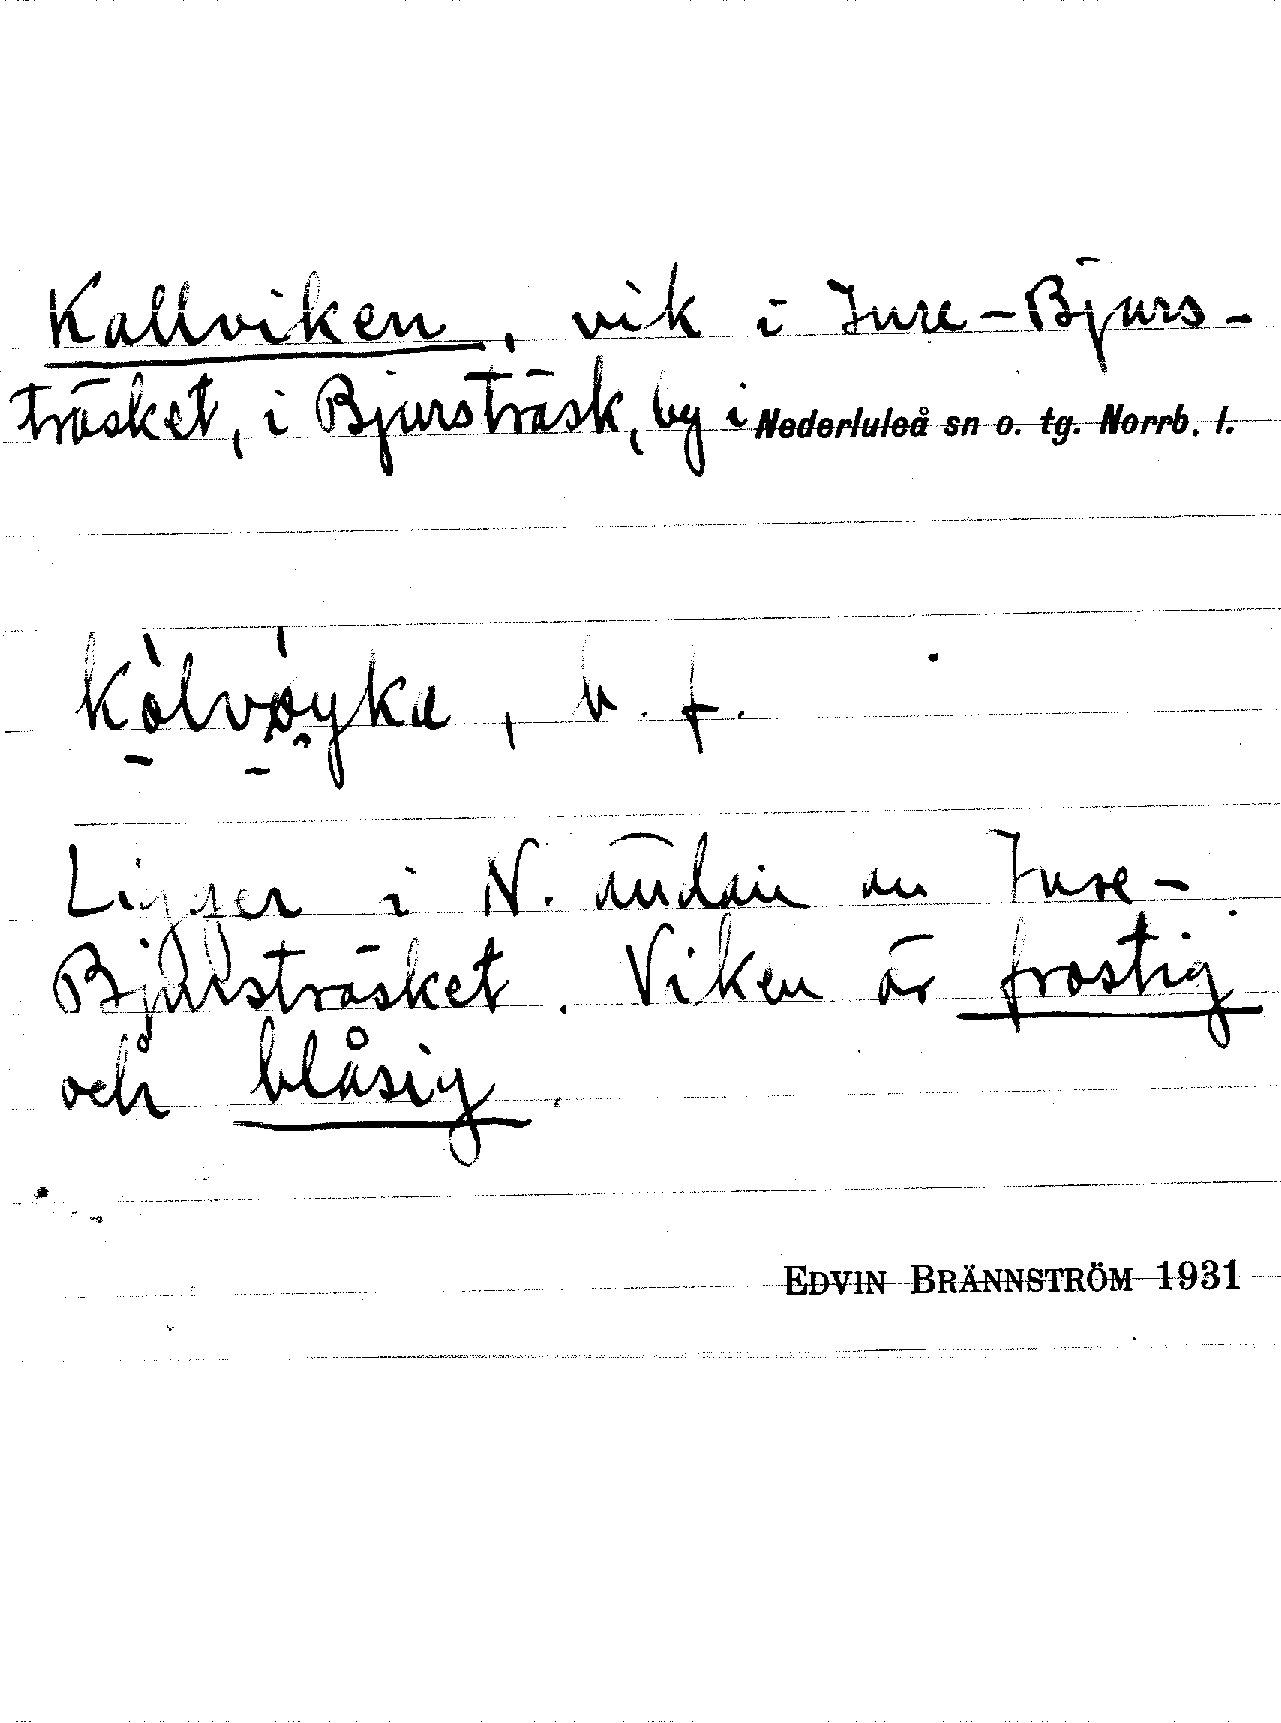 Kallviken, vik i Inre-Bjurs-
träsket, i Bjursträsk, by i Nederluleå sn o. tg. Norrb. l.
kòlvøyka, b. f.
Ligger i N. ändan av Inre-
Bjursträsket. Viken är frostig
och blåsig.
EDVIN BRÄNNSTRÖM 1931